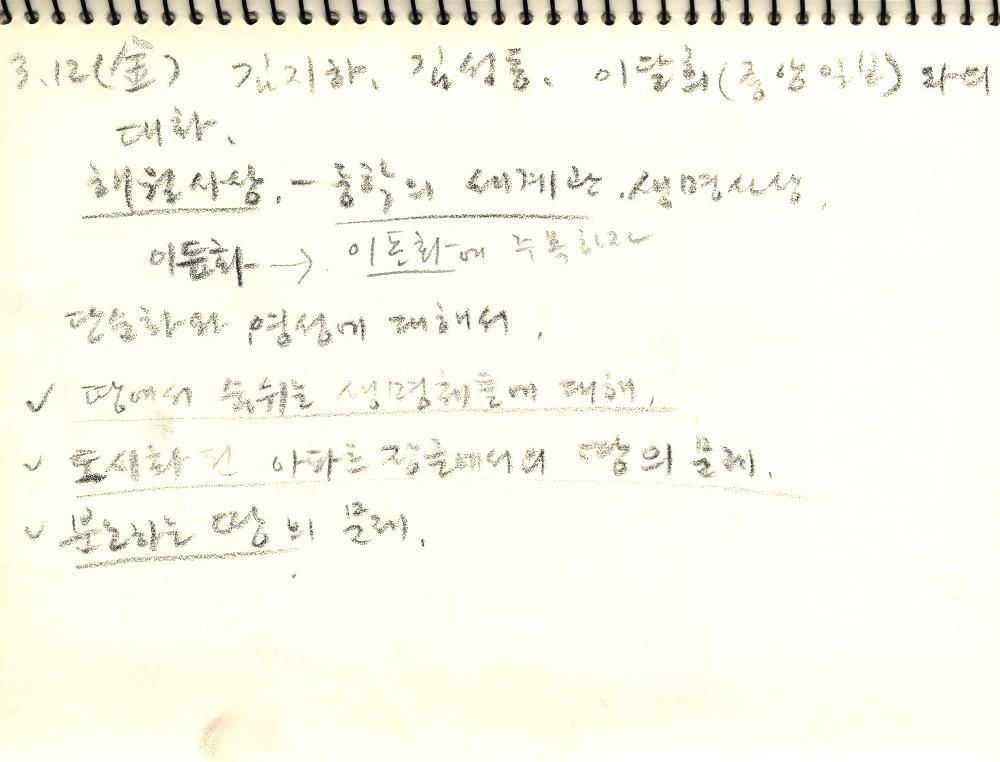 3.12(金) 김지하, 김성동, 이달희(중앙일보)와의
대화.
해월사상. - 동학의 세계관. 생명사상,
이돈화 → 이돈화에 주목하라
단순화와 영성에 대해서,
✓ 땅에서 숨쉬는 생명체들에 대해,
✓ 도시화된 아파트 정글에서의 땅의 문제.
✓ 분노하는 땅의 문제.